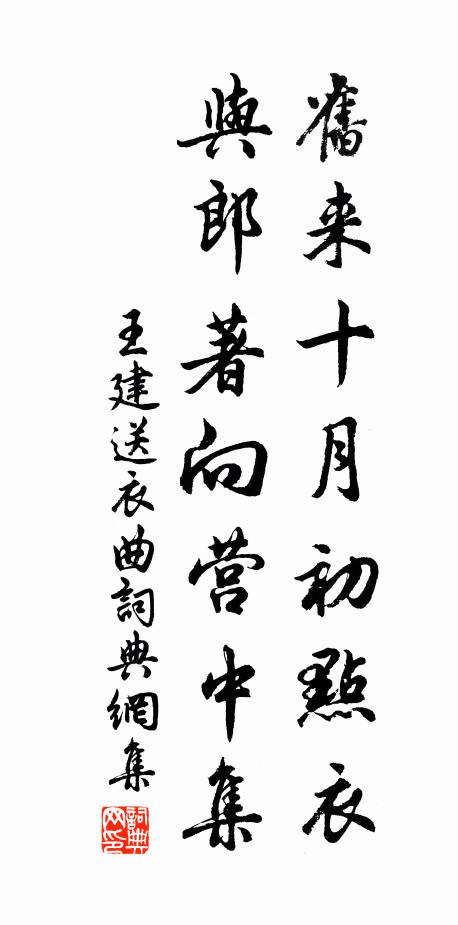 舊来十月初點衣
與郎著向营中集
王建送衣曲詞典網集
詞典网印